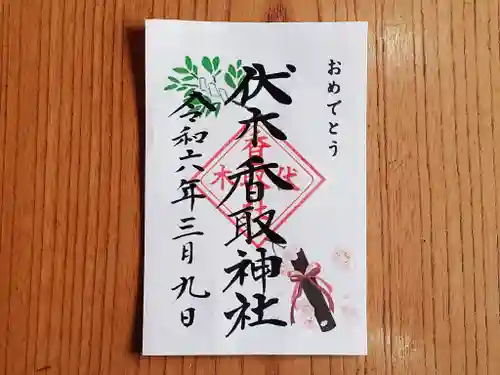 おめでとう
伏木香取神社
令和六年三月九日
伏木
香取